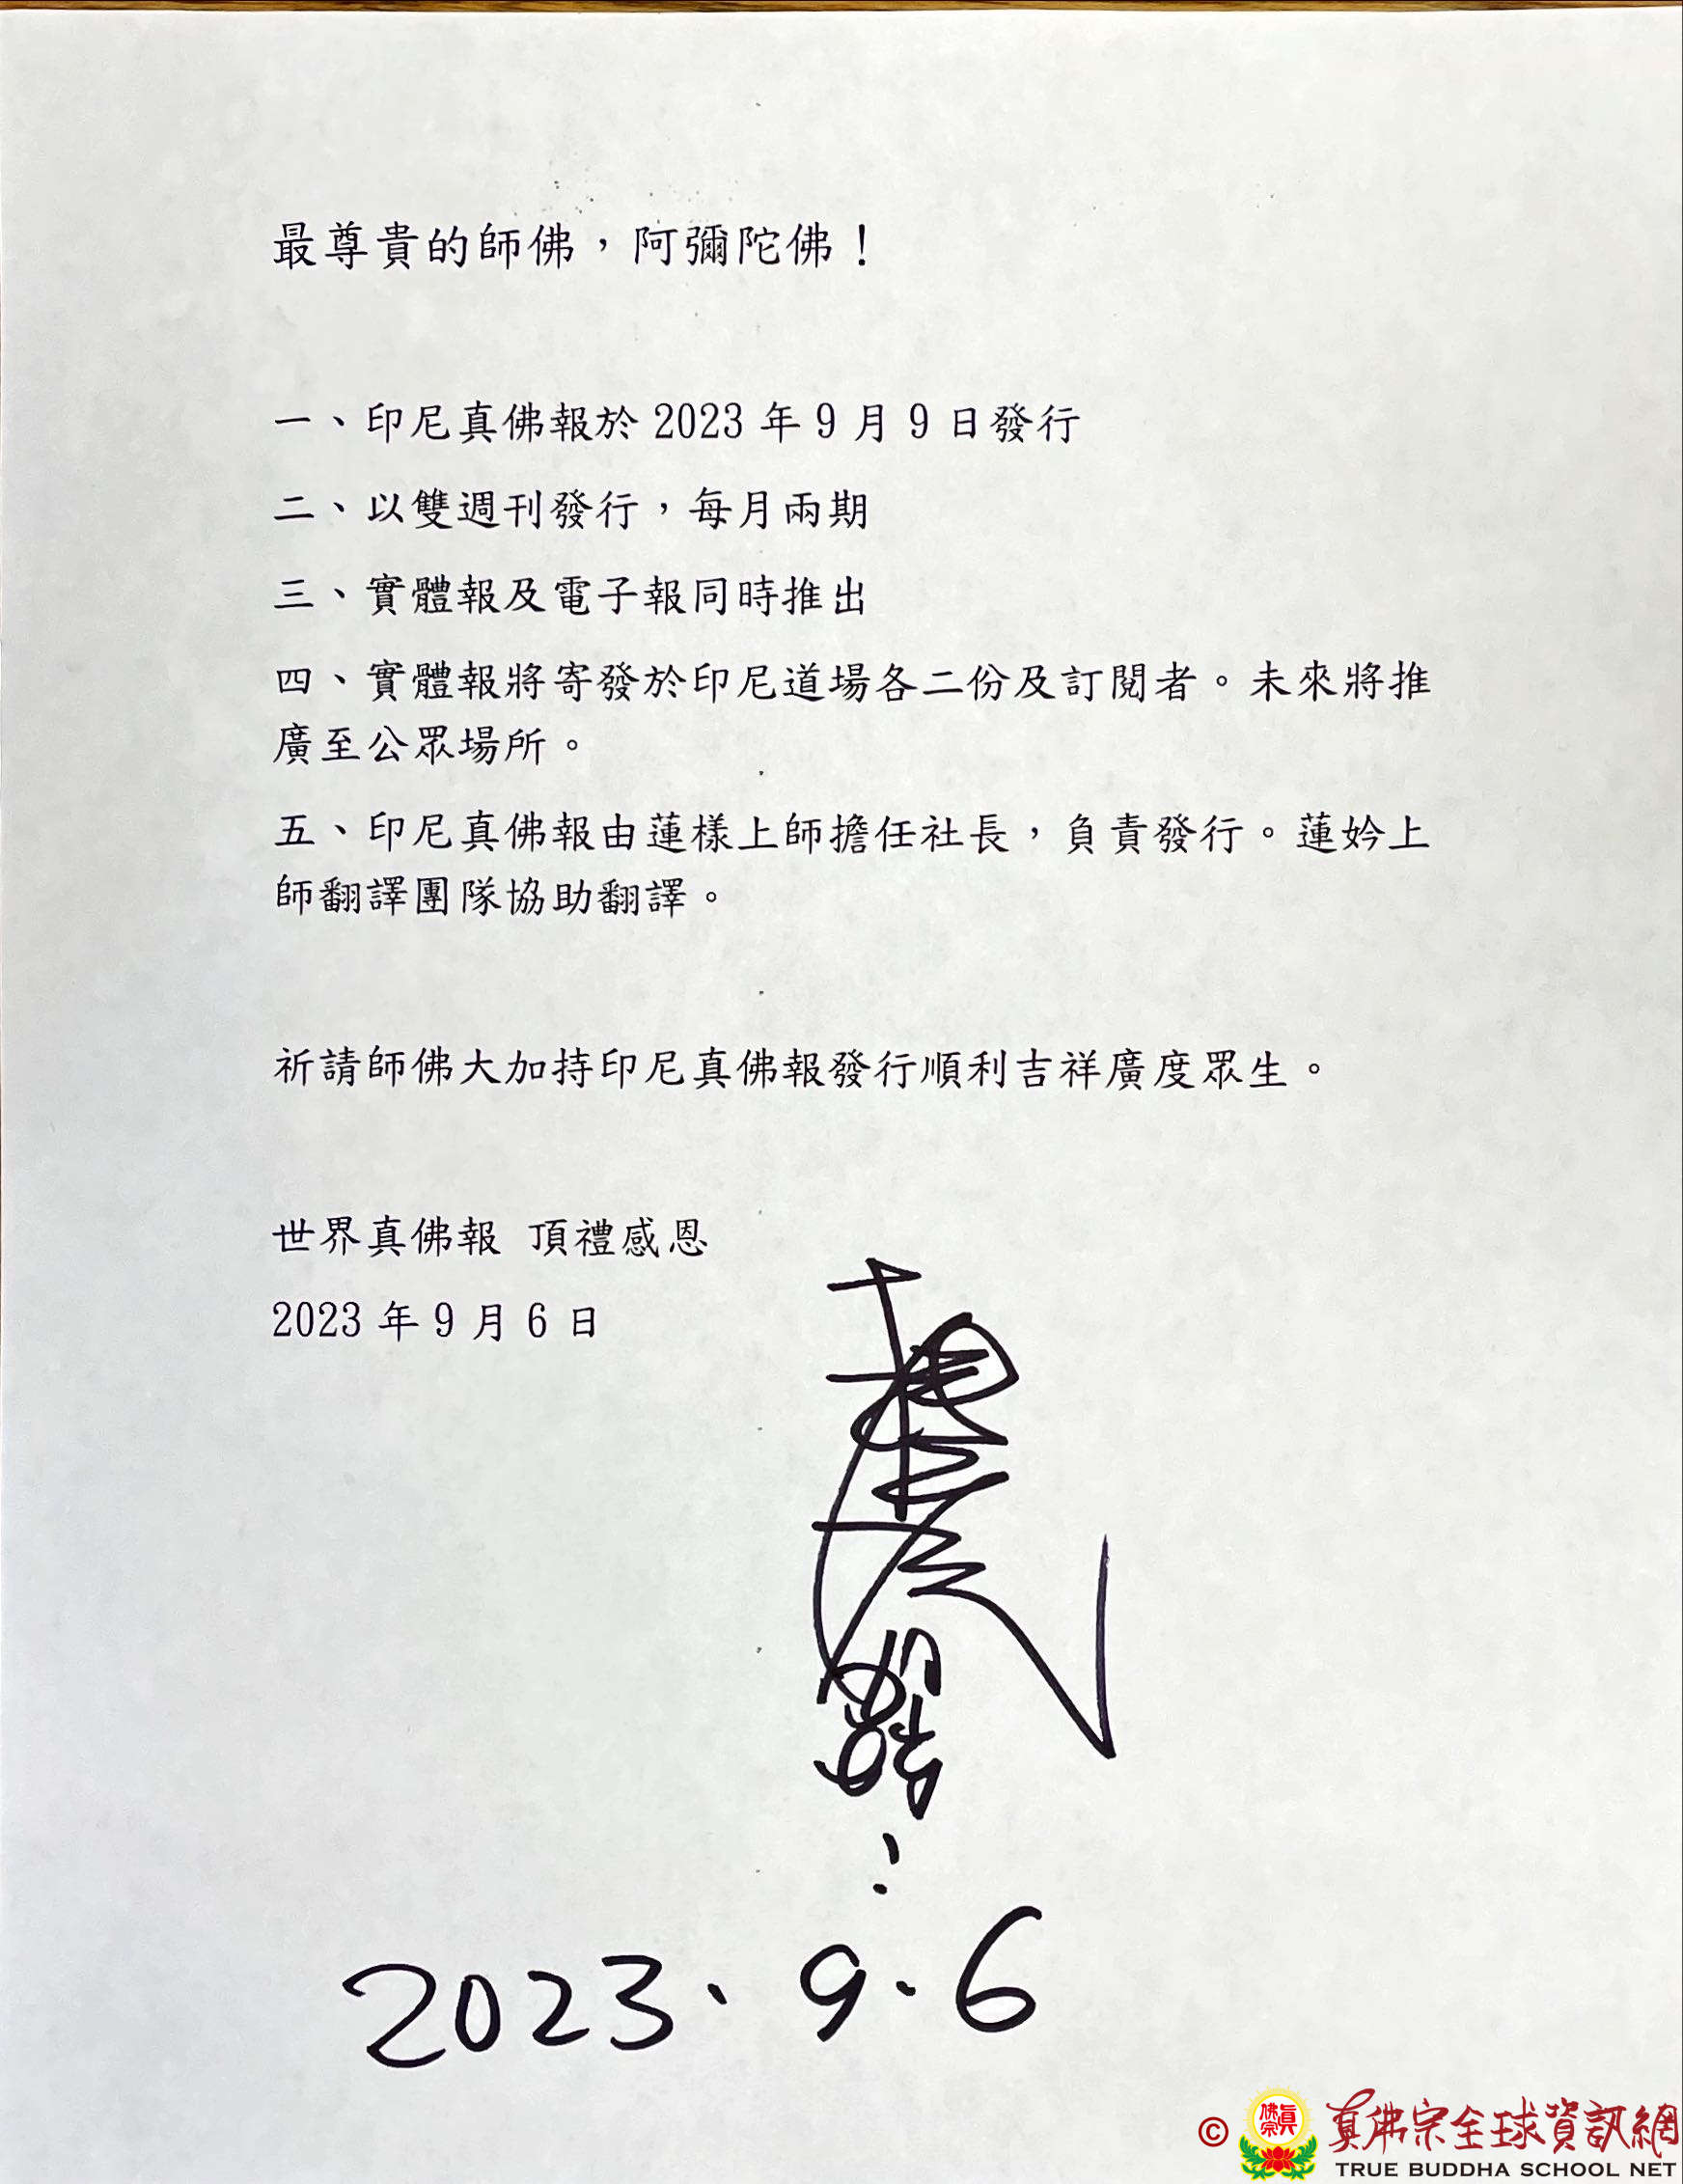 最尊貴的師佛，阿彌陀佛！
一、印尼真佛報於 2023 年 9 月 9 日發行
二、以雙週刊發行，每月兩期
三、實體報及電子報同時推出
四、實體報將寄發於印尼道場各二份及訂閱者。未來將推
廣至公眾場所。
五、印尼真佛報由蓮樣上師擔任社長，負責發行。蓮妗上
師翻譯團隊協助翻譯。
祈請師佛大加持印尼真佛報發行順利吉祥廣度眾生。
世界真佛報 頂禮感恩
2023 年 9 月 6 日
2023、9．6
© 真佛宗全球資訊網
TRUE BUDDHA SCHOOL NET